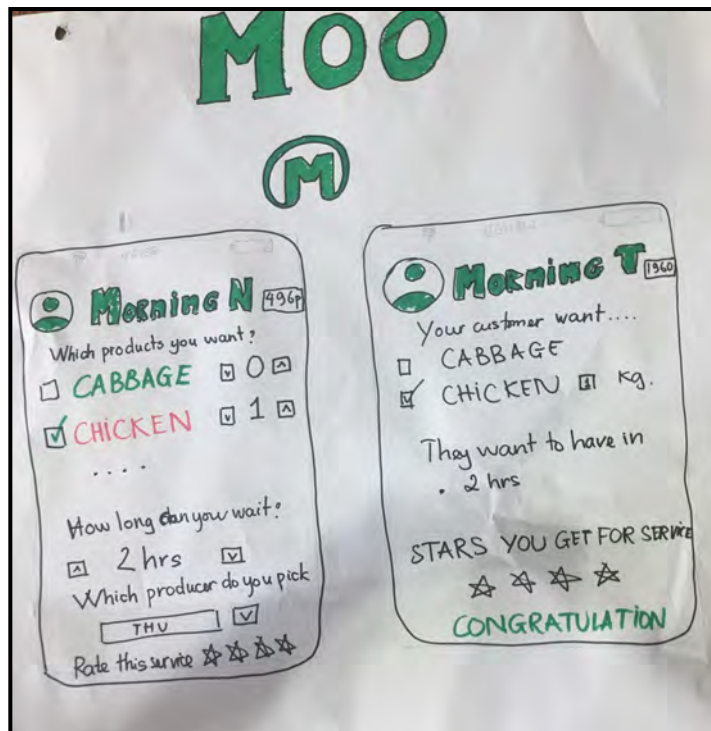 MOO
M
MORNING N 496p
Which products you want?
CABBAGE 0
CHICKEN 1
....
How long can you wait?
2 hrs
Which producer do you pick
THU
Rate this service
MORNING T 1960
Your customer want....
CABBAGE
CHICKEN 1 Kg.
They want to have in
. 2 hrs
STARS YOU GET FOR SERVICE
CONGRATULATION